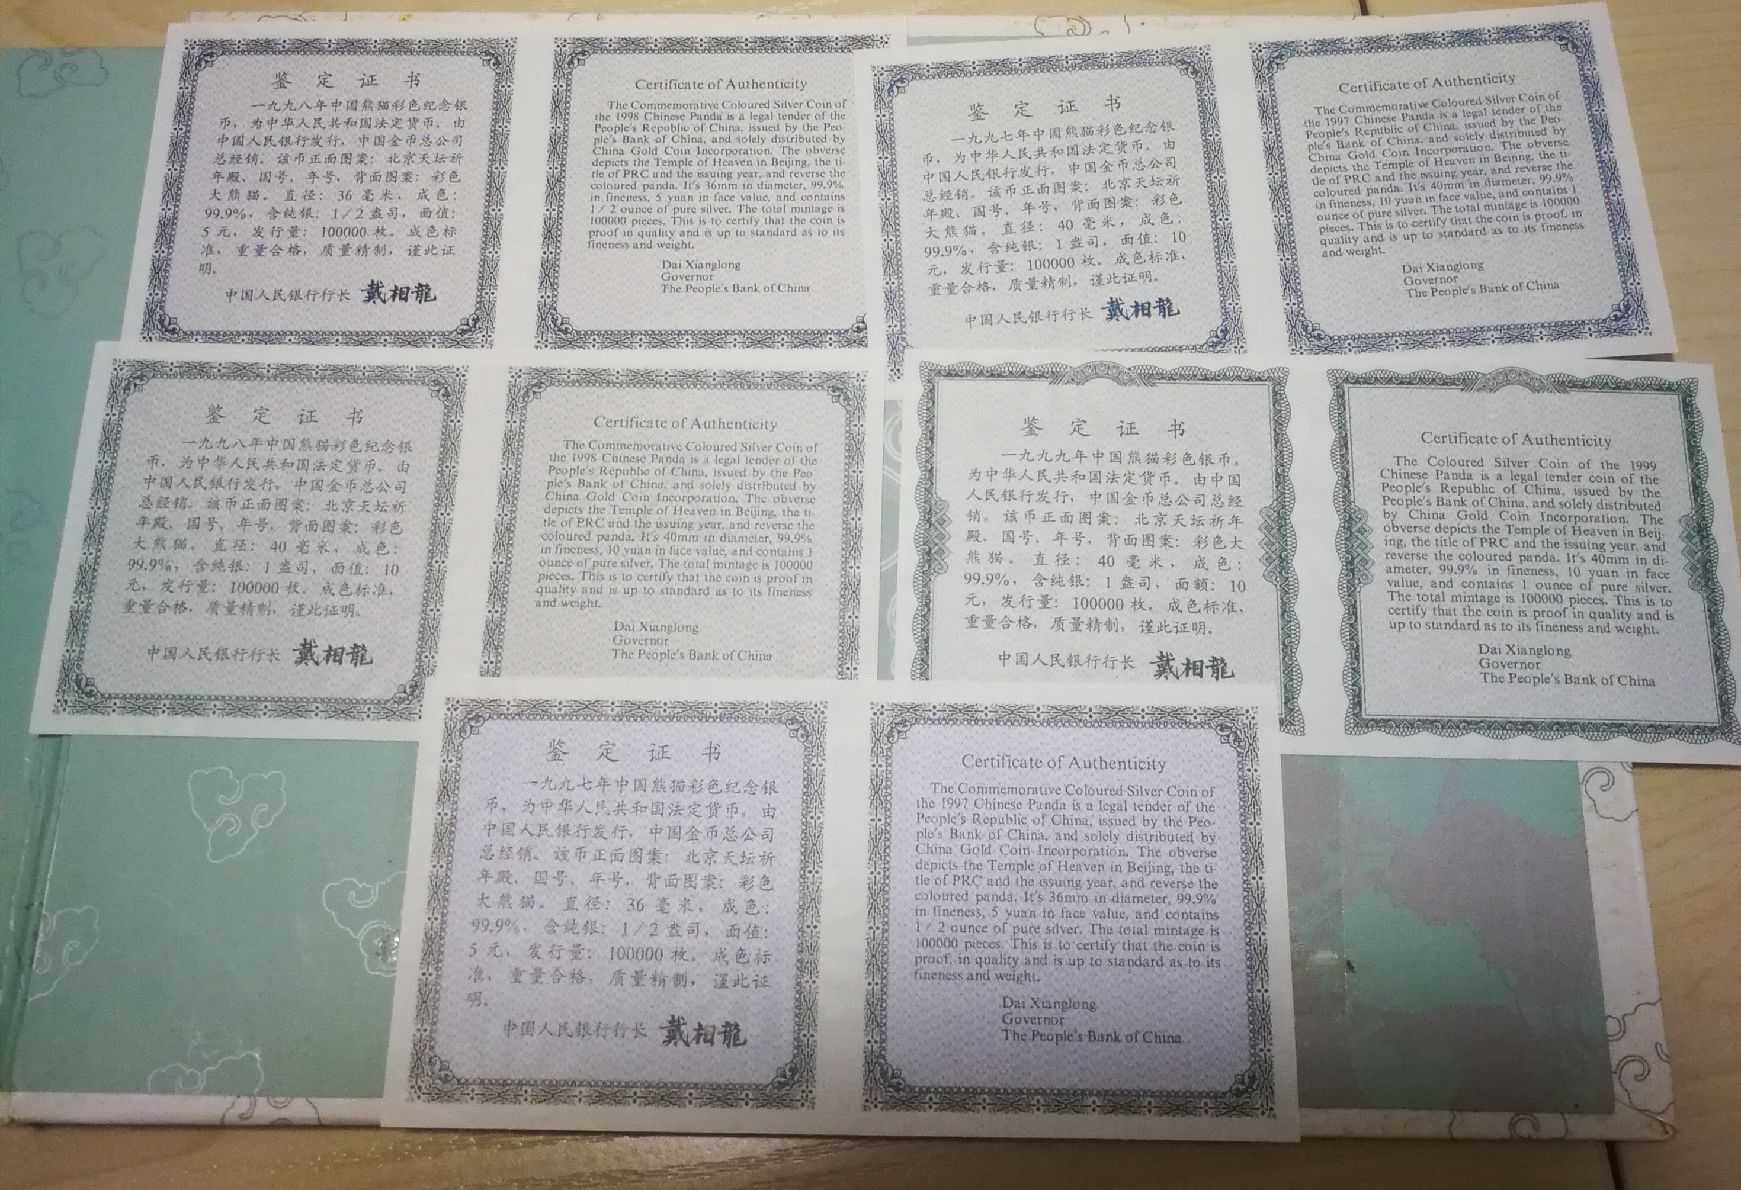 鉴定证书
一九九八年中国熊猫彩色纪念银
币，为中华人民共和国法定货币。由
中国人民银行发行，中国金币总公司
总经销。该币正面图案：北京天坛祈
年殿、国号、年号，背面图案：彩色
大熊猫。直径：36毫米，成色：
99.9%，含纯银：1／2盎司，面值：
5元，发行量：100000枚。成色标
准，重量合格，质量精制，谨此证
明。
中国人民银行行长 戴相龍
Certificate of Authenticity
The Commemorative Coloured Silver Coin of
the 1998 Chinese Panda is a legal tender of the
People's Republic of China, issued by the Peo-
ple's Bank of China, and solely distributed by
China Gold Coin Incorporation. The obverse
depicts the Temple of Heaven in Beijing, the ti-
tle of PRC and the issuing year, and reverse the
coloured panda. It's 36mm in diameter, 99.9%
in fineness, 5 yuan in face value, and contains
1／2 ounce of pure silver. The total mintage is
100000 pieces. This is to certify that the coin is
proof in quality and is up to standard as to its
fineness and weight.
Dai Xianglong
Governor
The People's Bank of China
鉴定证书
一九九七年中国熊猫彩色纪念银
币，为中华人民共和国法定货币。由
中国人民银行发行，中国金币总公司
总经销。该币正面图案：北京天坛祈
年殿、国号、年号，背面图案：彩色
大熊猫。直径：40毫米，成色：
99.9%，含纯银：1盎司，面值：10
元，发行量：100000枚。成色标准，
重量合格，质量精制，谨此证明。
中国人民银行行长 戴相龍
Certificate of Authenticity
The Commemorative Coloured Silver Coin of
the 1997 Chinese Panda is a legal tender of the
People's Republic of China, issued by the Peo-
ple's Bank of China, and solely distributed by
China Gold Coin Incorporation. The obverse
depicts the Temple of Heaven in Beijing, the ti-
tle of PRC and the issuing year, and reverse the
coloured panda. It's 40mm in diameter, 99.9%
in fineness, 10 yuan in face value, and contains 1
ounce of pure silver. The total mintage is 100000
pieces. This is to certify that the coin is proof, in
quality and is up to standard as to its fineness
and weight.
Dai Xianglong
Governor
The People's Bank of China
鉴定证书
一九九八年中国熊猫彩色纪念银
币，为中华人民共和国法定货币。由
中国人民银行发行，中国金币总公司
总经销。该币正面图案：北京天坛祈
年殿、国号、年号，背面图案：彩色
大熊猫。直径：40毫米，成色：
99.9%，含纯银：1盎司，面值：10
元，发行量：100000枚。成色标准，
重量合格，质量精制，谨此证明。
中国人民银行行长 戴相龍
Certificate of Authenticity
The Commemorative Coloured Silver Coin of
the 1998 Chinese Panda is a legal tender of the
People's Republic of China, issued by the Peo-
ple's Bank of China, and solely distributed by
China Gold Coin Incorporation. The obverse
depicts the Temple of Heaven in Beijing, the ti-
tle of PRC and the issuing year, and reverse the
coloured panda. It's 40mm in diameter, 99.9%
in fineness, 10 yuan in face value, and contains 1
ounce of pure silver. The total mintage is 100000
pieces. This is to certify that the coin is proof in
quality and is up to standard as to its fineness
and weight.
Dai Xianglong
Governor
The People's Bank of China
鉴定证书
一九九九年中国熊猫彩色银币，
为中华人民共和国法定货币。由中国
人民银行发行，中国金币总公司总经
销。该币正面图案：北京天坛祈年
殿、国号、年号，背面图案：彩色大
熊猫。直径：40毫米，成色：
99.9%，含纯银：1盎司，面额：10
元，发行量：100000枚。成色标准，
重量合格，质量精制，谨此证明。
中国人民银行行长 戴相龍
Certificate of Authenticity
The Coloured Silver Coin of the 1999
Chinese Panda is a legal tender coin of the
People's Republic of China, issued by the
People's Bank of China, and solely distributed
by China Gold Coin Incorporation. The
obverse depicts the Temple of Heaven in Beij-
ing, the title of PRC and the issuing year, and
reverse the coloured panda. It's 40mm in di-
ameter, 99.9% in fineness, 10 yuan in face
value, and contains 1 ounce of pure silver.
The total mintage is 100000 pieces. This is to
certify that the coin is proof in quality and is
up to standard as to its fineness and weight.
Dai Xianglong
Governor
The People's Bank of China
鉴定证书
一九九七年中国熊猫彩色纪念银
币，为中华人民共和国法定货币。由
中国人民银行发行，中国金币总公司
总经销。该币正面图案：北京天坛祈
年殿、国号、年号，背面图案：彩色
大熊猫。直径：36毫米，成色：
99.9%，含纯银：1／2盎司，面值：
5元，发行量：100000枚。成色标
准，重量合格，质量精制，谨此证
明。
中国人民银行行长 戴相龍
Certificate of Authenticity
The Commemorative Coloured Silver Coin of
the 1997 Chinese Panda is a legal tender of the
People's Republic of China, issued by the Peo-
ple's Bank of China, and solely distributed by
China Gold Coin Incorporation. The obverse
depicts the Temple of Heaven in Beijing, the ti-
tle of PRC and the issuing year, and reverse the
coloured panda. It's 36mm in diameter, 99.9%
in fineness, 5 yuan in face value, and contains
1／2 ounce of pure silver. The total mintage is
100000 pieces. This is to certify that the coin is
proof, in quality and is up to standard as to its
fineness and weight.
Dai Xianglong
Governor
The People's Bank of China